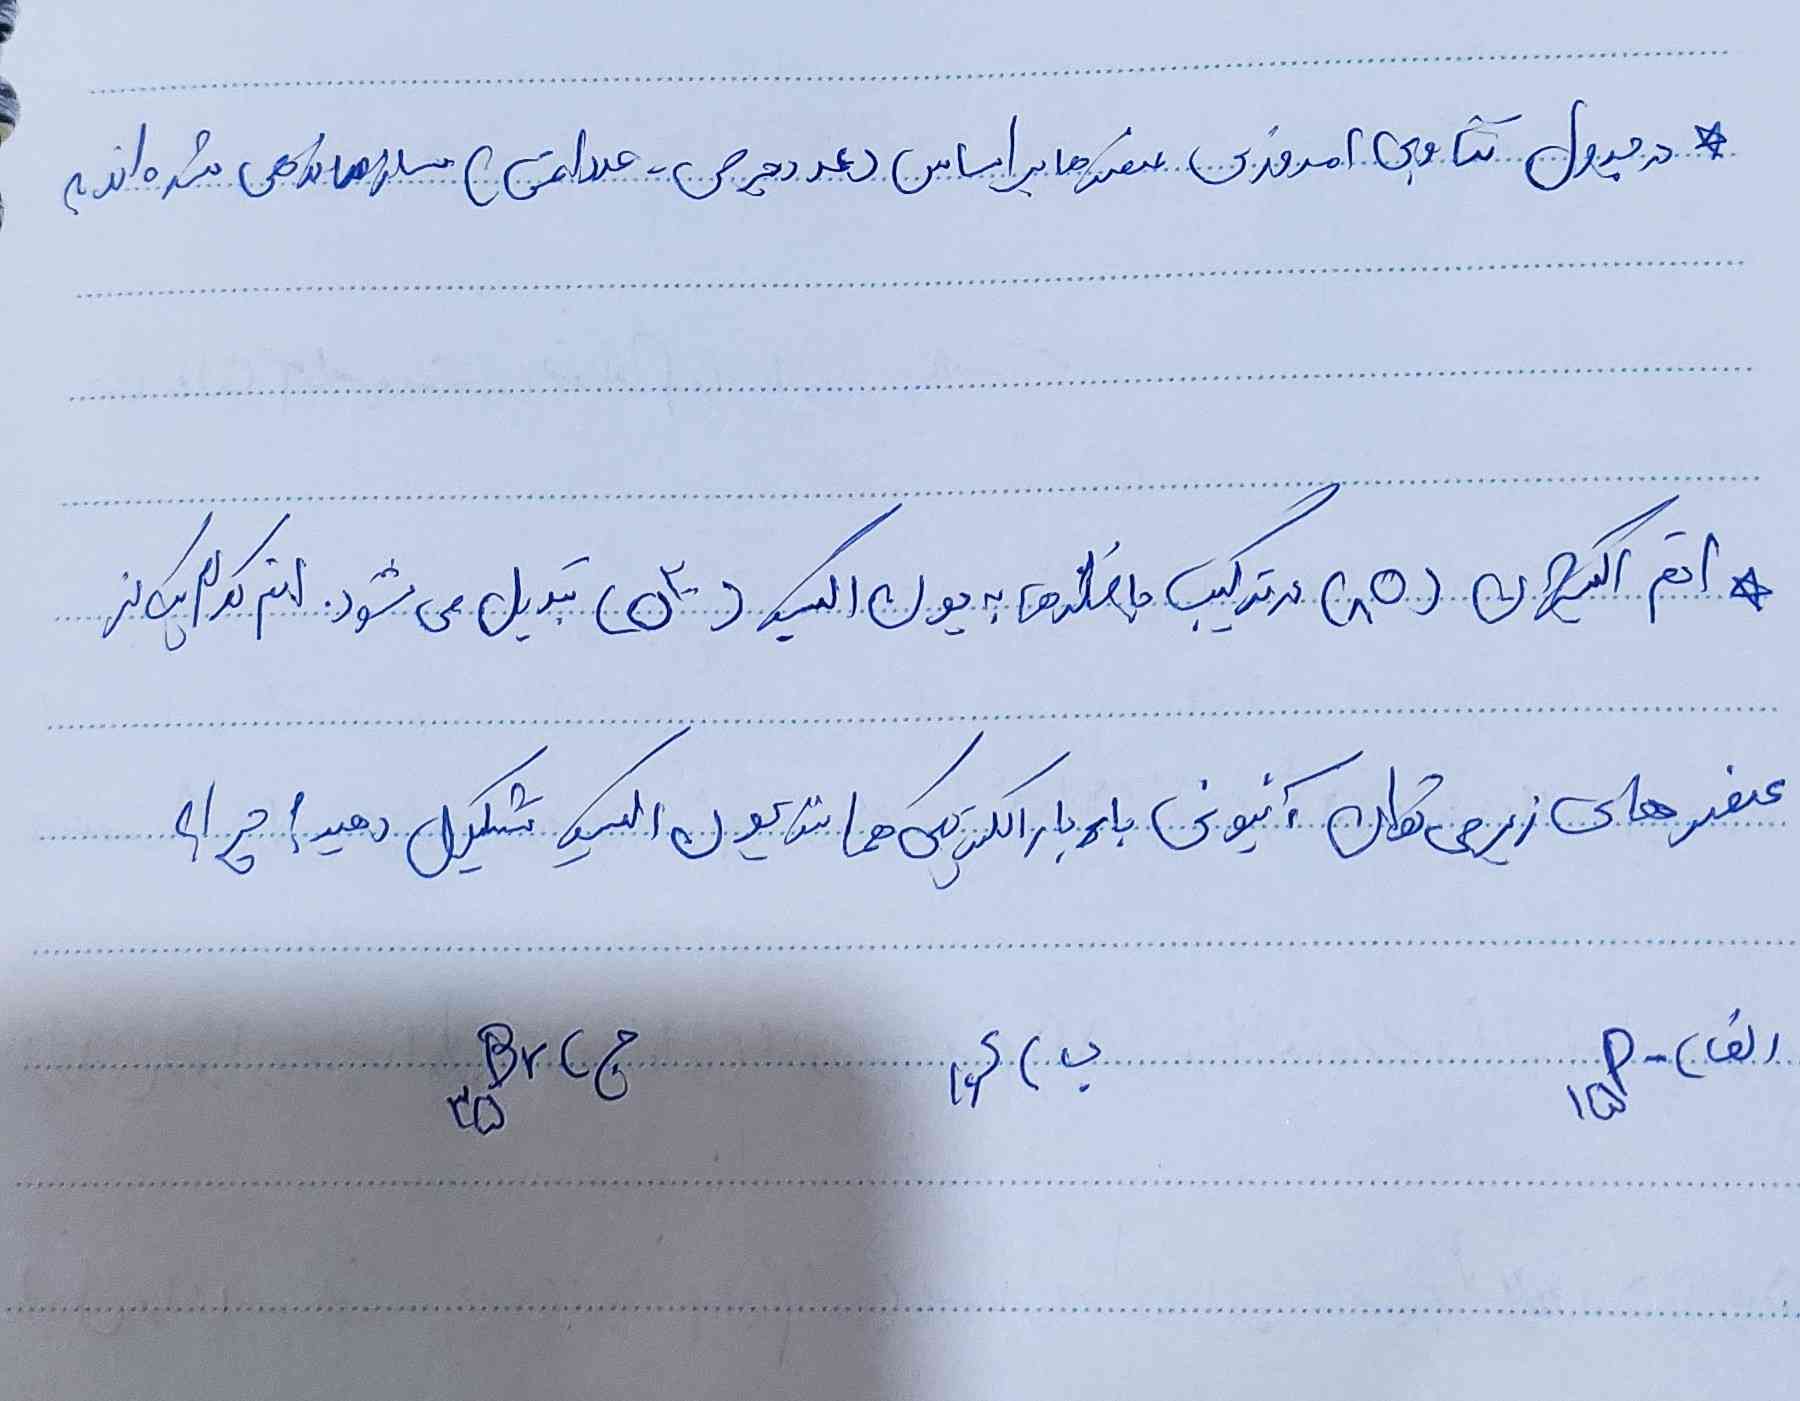 * در جدول تناوبی امروزی عنصرها بر اساس (عدد جرمی - عدد اتمی) سازماندهی شده اند.
* اتم اکسیژن (₈O) در ترکیب با فلزها به یون اکسید (O²⁻) تبدیل می شود. اتم کدام یک از
عنصرهای زیر می تواند آنیونی با بار الکتریکی همانند یون اکسید تشکیل دهید؟ چرا؟
الف) - ₁₅P ب) ₁₆S ج) ₃₅Br